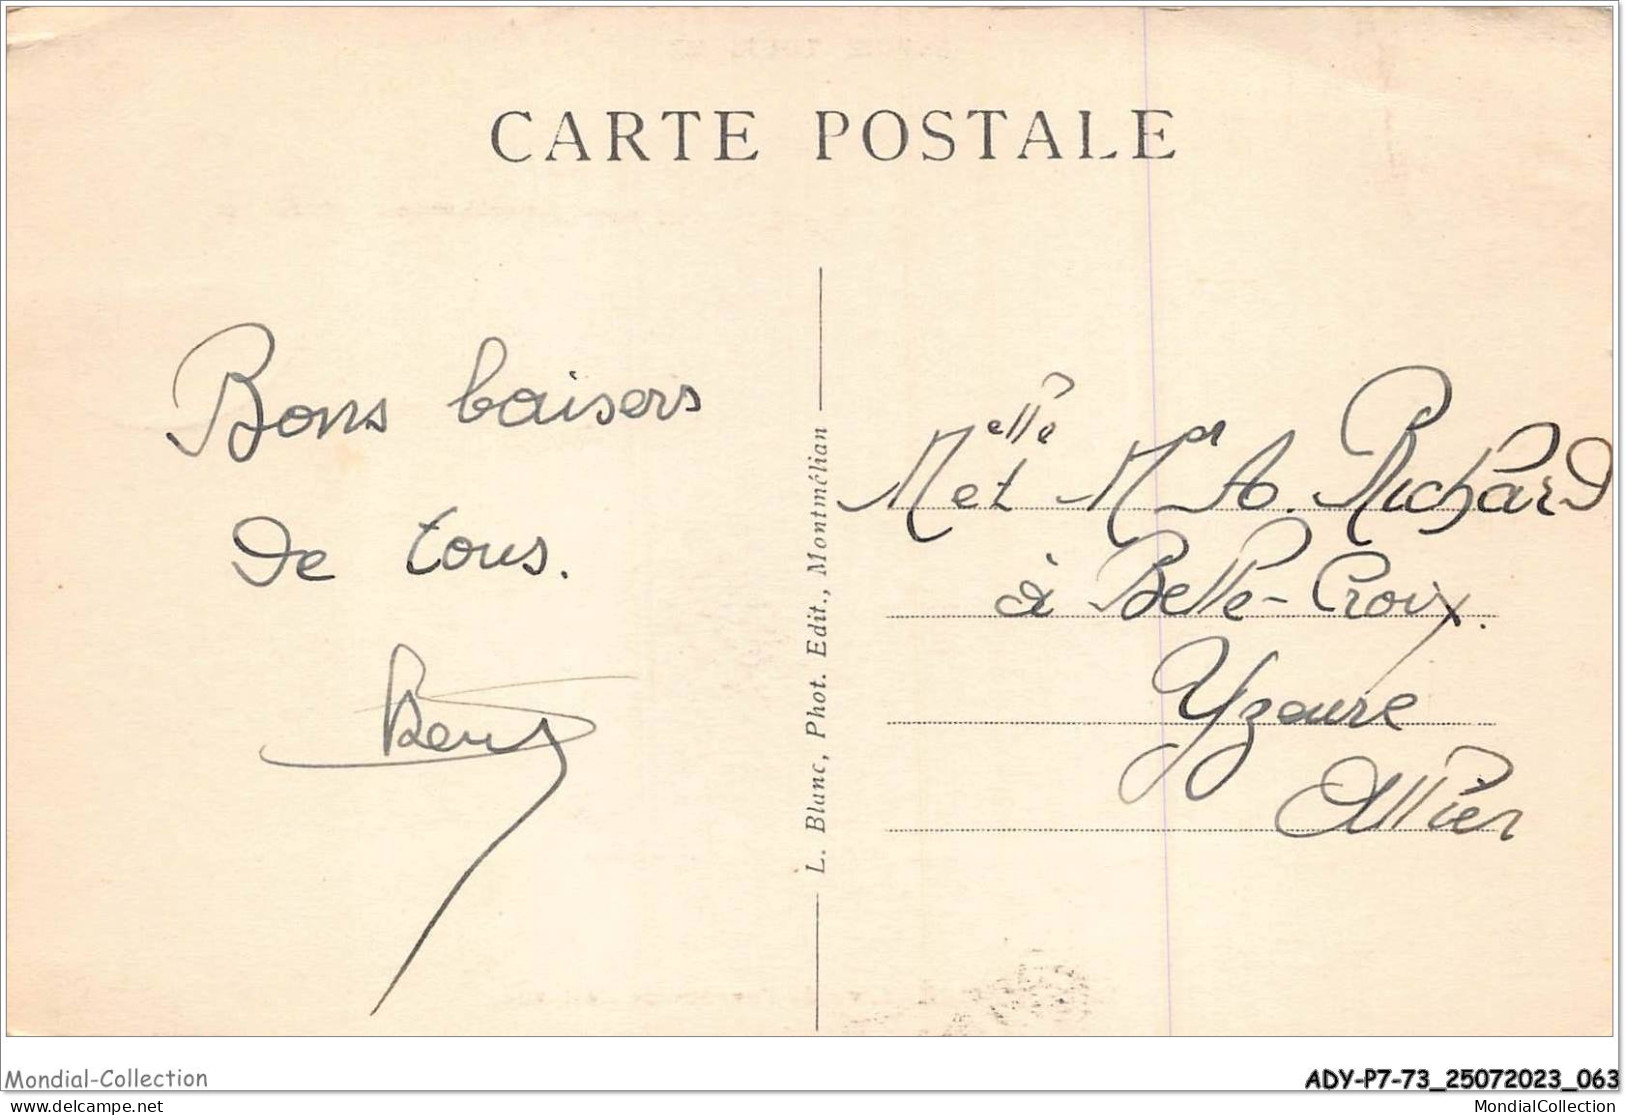 CARTE POSTALE
Bons baisers
de tous.
L. Blanc, Phot. Edit., Montmélian
Melle et Mr A. Richard
à Belle-Croix.
Yzeure
Allier
Mondial-Collection
ADY-P7-73_25072023_063
delcampe.net
MondialCollection